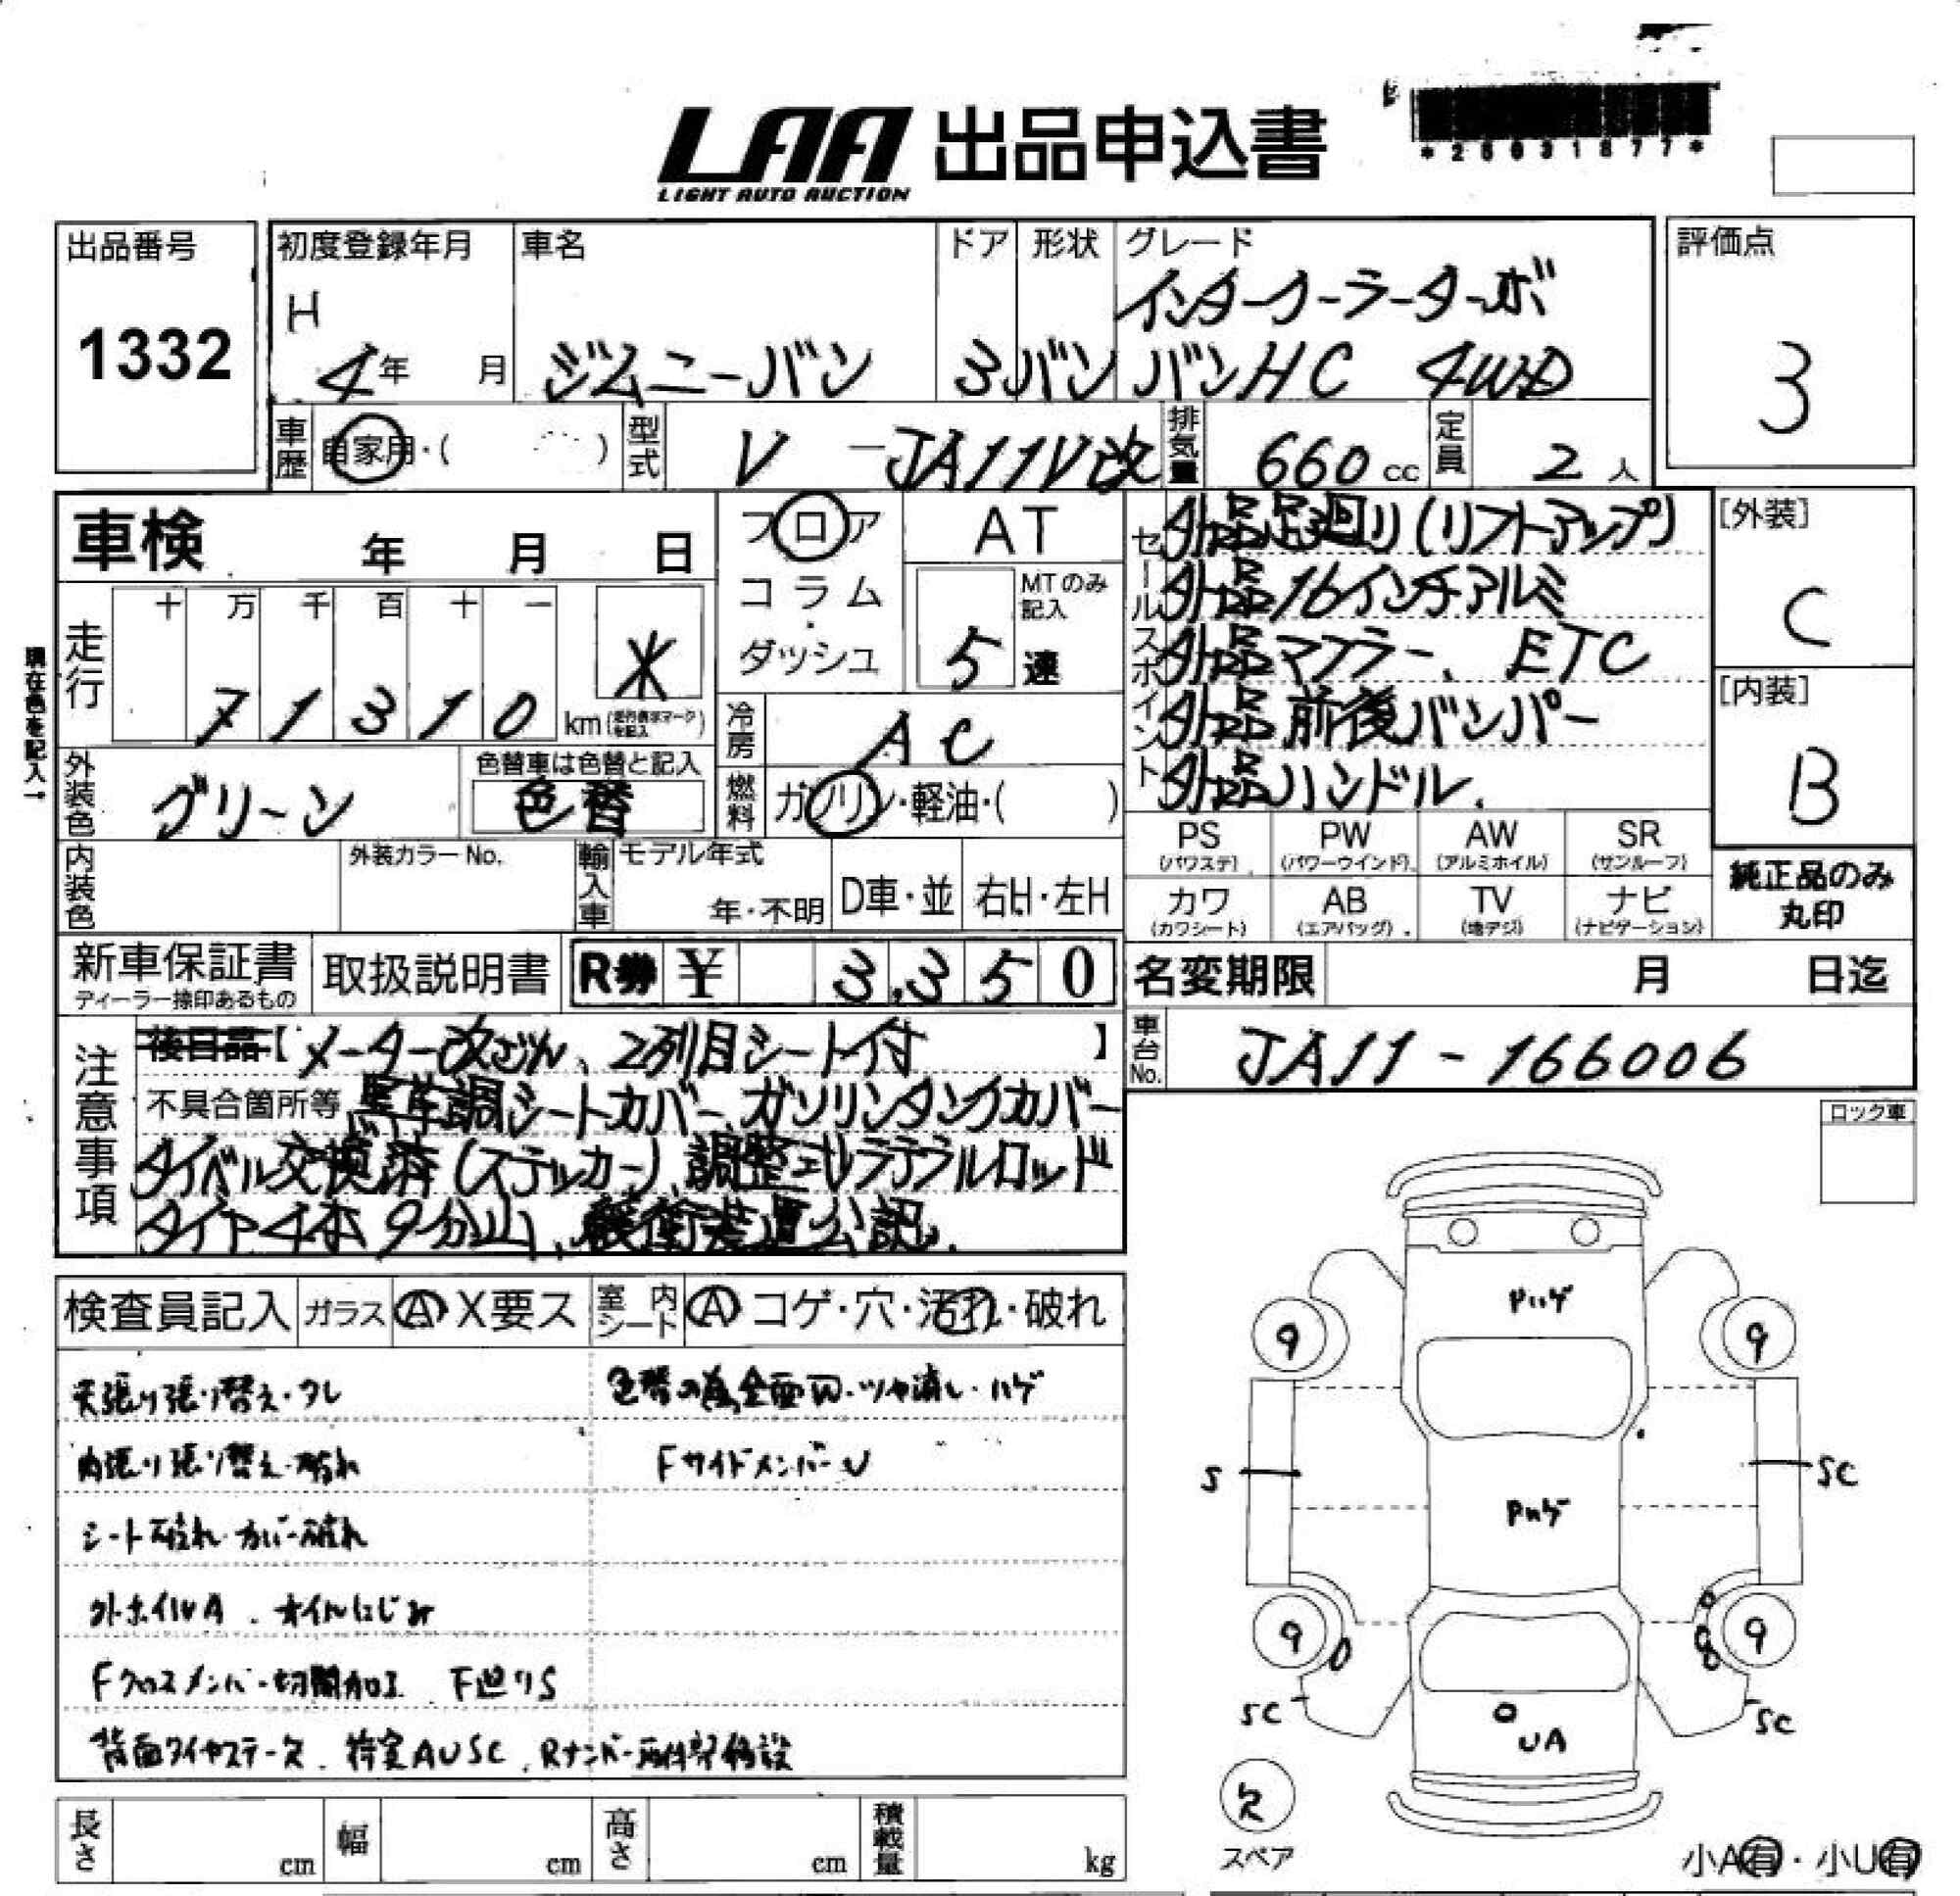 LAA 出品申込書
LIGHT AUTO AUCTION
出品番号
1332
初度登録年月
H
4年 月
車名
ジムニーバン
ドア
3
形状
バン
グレード
インタークーラーターボ
バンHC 4WD
評価点
3
車歴
自家用・( )
型式
V -JA11V改
排気量
660 cc
定員
2 人
車検 年 月 日
フロア
コラム
・
ダッシュ
AT
MTのみ記入
5 速
セールスポイント
外品足廻り(リフトアップ)
外品16インチアルミ
外品マフラー、ETC
外品前後バンパー
外品ハンドル、
[外装]
C
[内装]
B
純正品のみ
丸印
現在色を記入→
走行
十 万 千 百 十 一
7 1 3 1 0 km
*
冷房
AC
外装色
グリーン
色替車は色替と記入
色替
燃料
ガソリン・軽油・( )
PS (パワステ) PW (パワーウインド) AW (アルミホイル) SR (サンルーフ)
カワ (カワシート) AB (エアバッグ) TV (地デジ) ナビ (ナビゲーション)
内装色
外装カラーNo.
輸入車
モデル年式
年・不明
D車・並
右H・左H
新車保証書
ディーラー捺印あるもの
取扱説明書
R券 ¥ 3,350
名変期限 月 日迄
車台No.
JA11-166006
注意事項
後日品【メーター改ざん、2列目シート付】
不具合箇所等 黒革調シートカバー、ガソリンタンクカバー
タイベル交換済(ステッカー)、調整式ラテラルロッド
タイヤ4本9分山、緩衝装置公認、
ロック車
検査員記入
ガラス A X要ス
室内シート A コゲ・穴・汚れ・破れ
天張り張り替え・タレ
内張り張り替え・破れ
シート破れ・カバー破れ
外ホイルA、オイルにじみ
Fクロスメンバー切開加工 下廻りS
背面タイヤステー欠、
色替の為全面 ・ツヤ消し・ハゲ
FサイドメンバーU
Pハゲ
9 9
S SC
Pハゲ
9 9
SC SC
UA
欠
スペア
小A有・小U有
長さ cm
幅 cm
高さ cm
積載量 kg